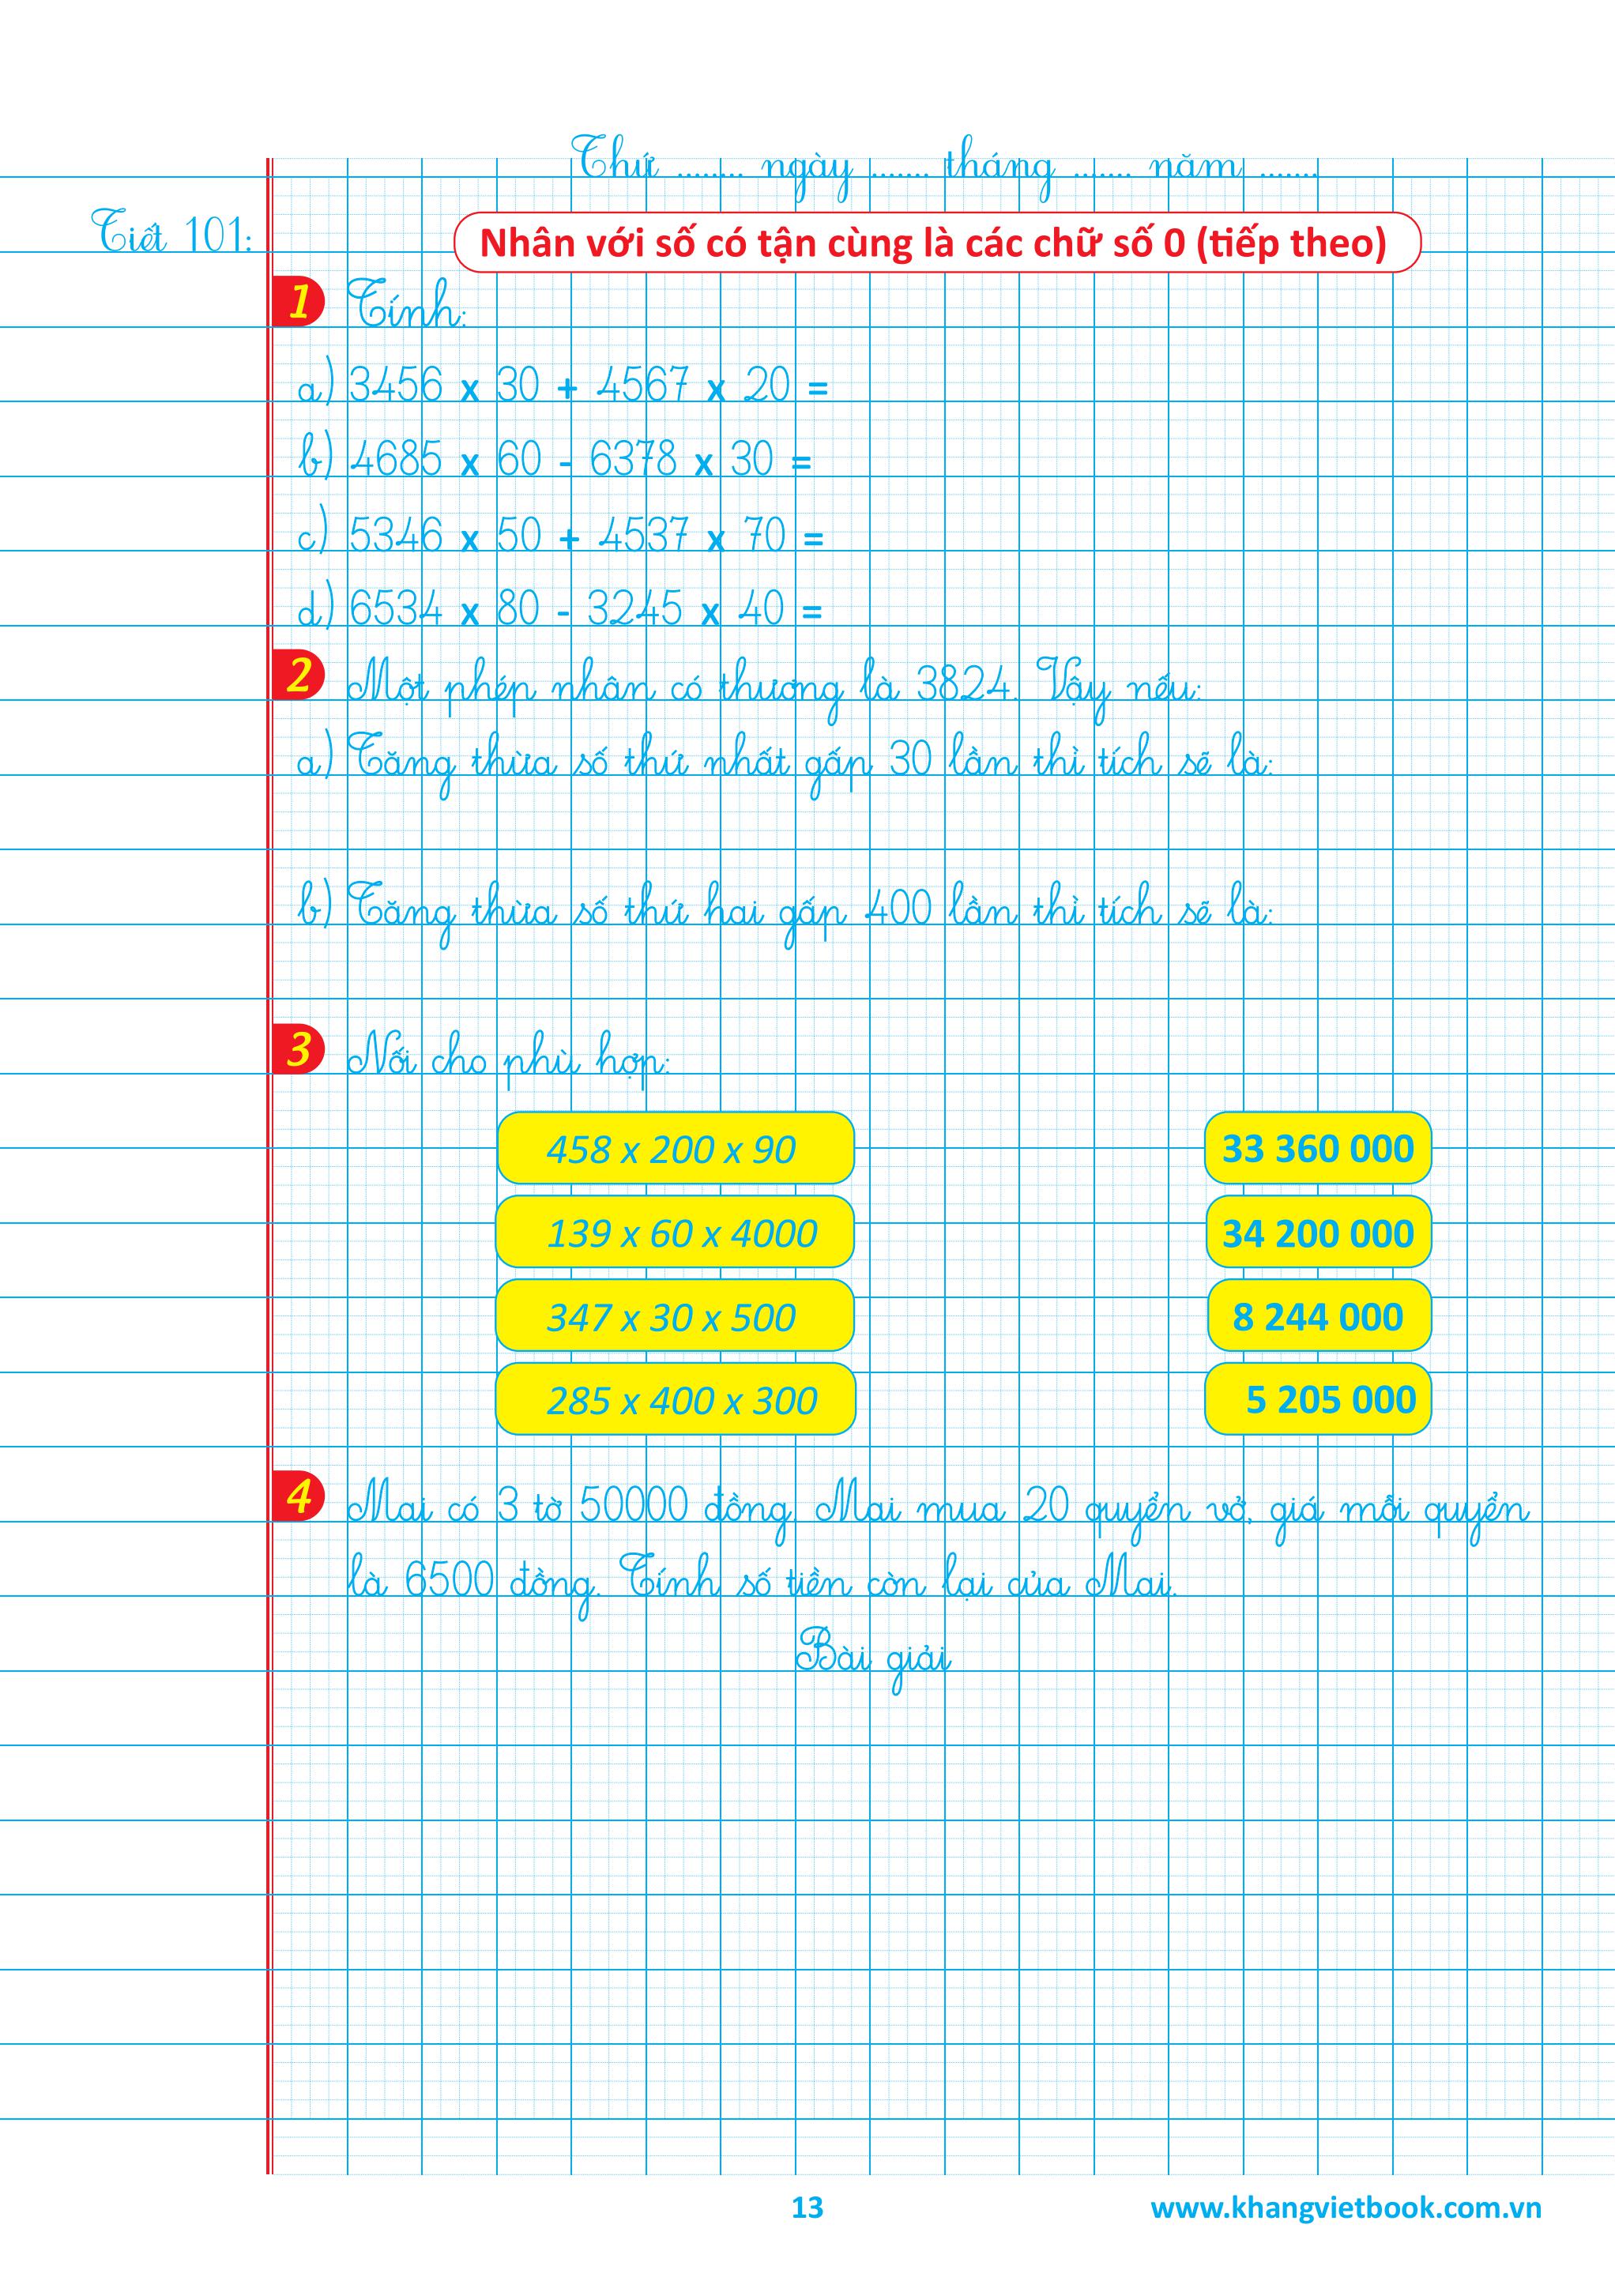 Thứ ........ ngày ....... tháng ....... năm .......
Tiết 101:
Nhân với số có tận cùng là các chữ số 0 (tiếp theo)
1 Tính:
a) 3456 x 30 + 4567 x 20 =
b) 4685 x 60 - 6378 x 30 =
c) 5346 x 50 + 4537 x 70 =
d) 6534 x 80 - 3245 x 40 =
2 Một phép nhân có thương là 3824. Vậy nếu:
a) Tăng thừa số thứ nhất gấp 30 lần thì tích sẽ là:
b) Tăng thừa số thứ hai gấp 400 lần thì tích sẽ là:
3 Nối cho phù hợp:
458 x 200 x 90 33 360 000
139 x 60 x 4000 34 200 000
347 x 30 x 500 8 244 000
285 x 400 x 300 5 205 000
4 Mai có 3 tờ 50000 đồng. Mai mua 20 quyển vở, giá mỗi quyển
là 6500 đồng. Tính số tiền còn lại của Mai.
Bài giải
13 www.khangvietbook.com.vn